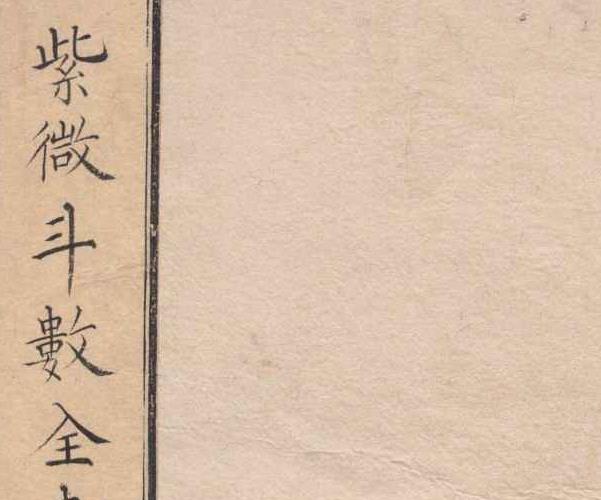 紫微斗數全